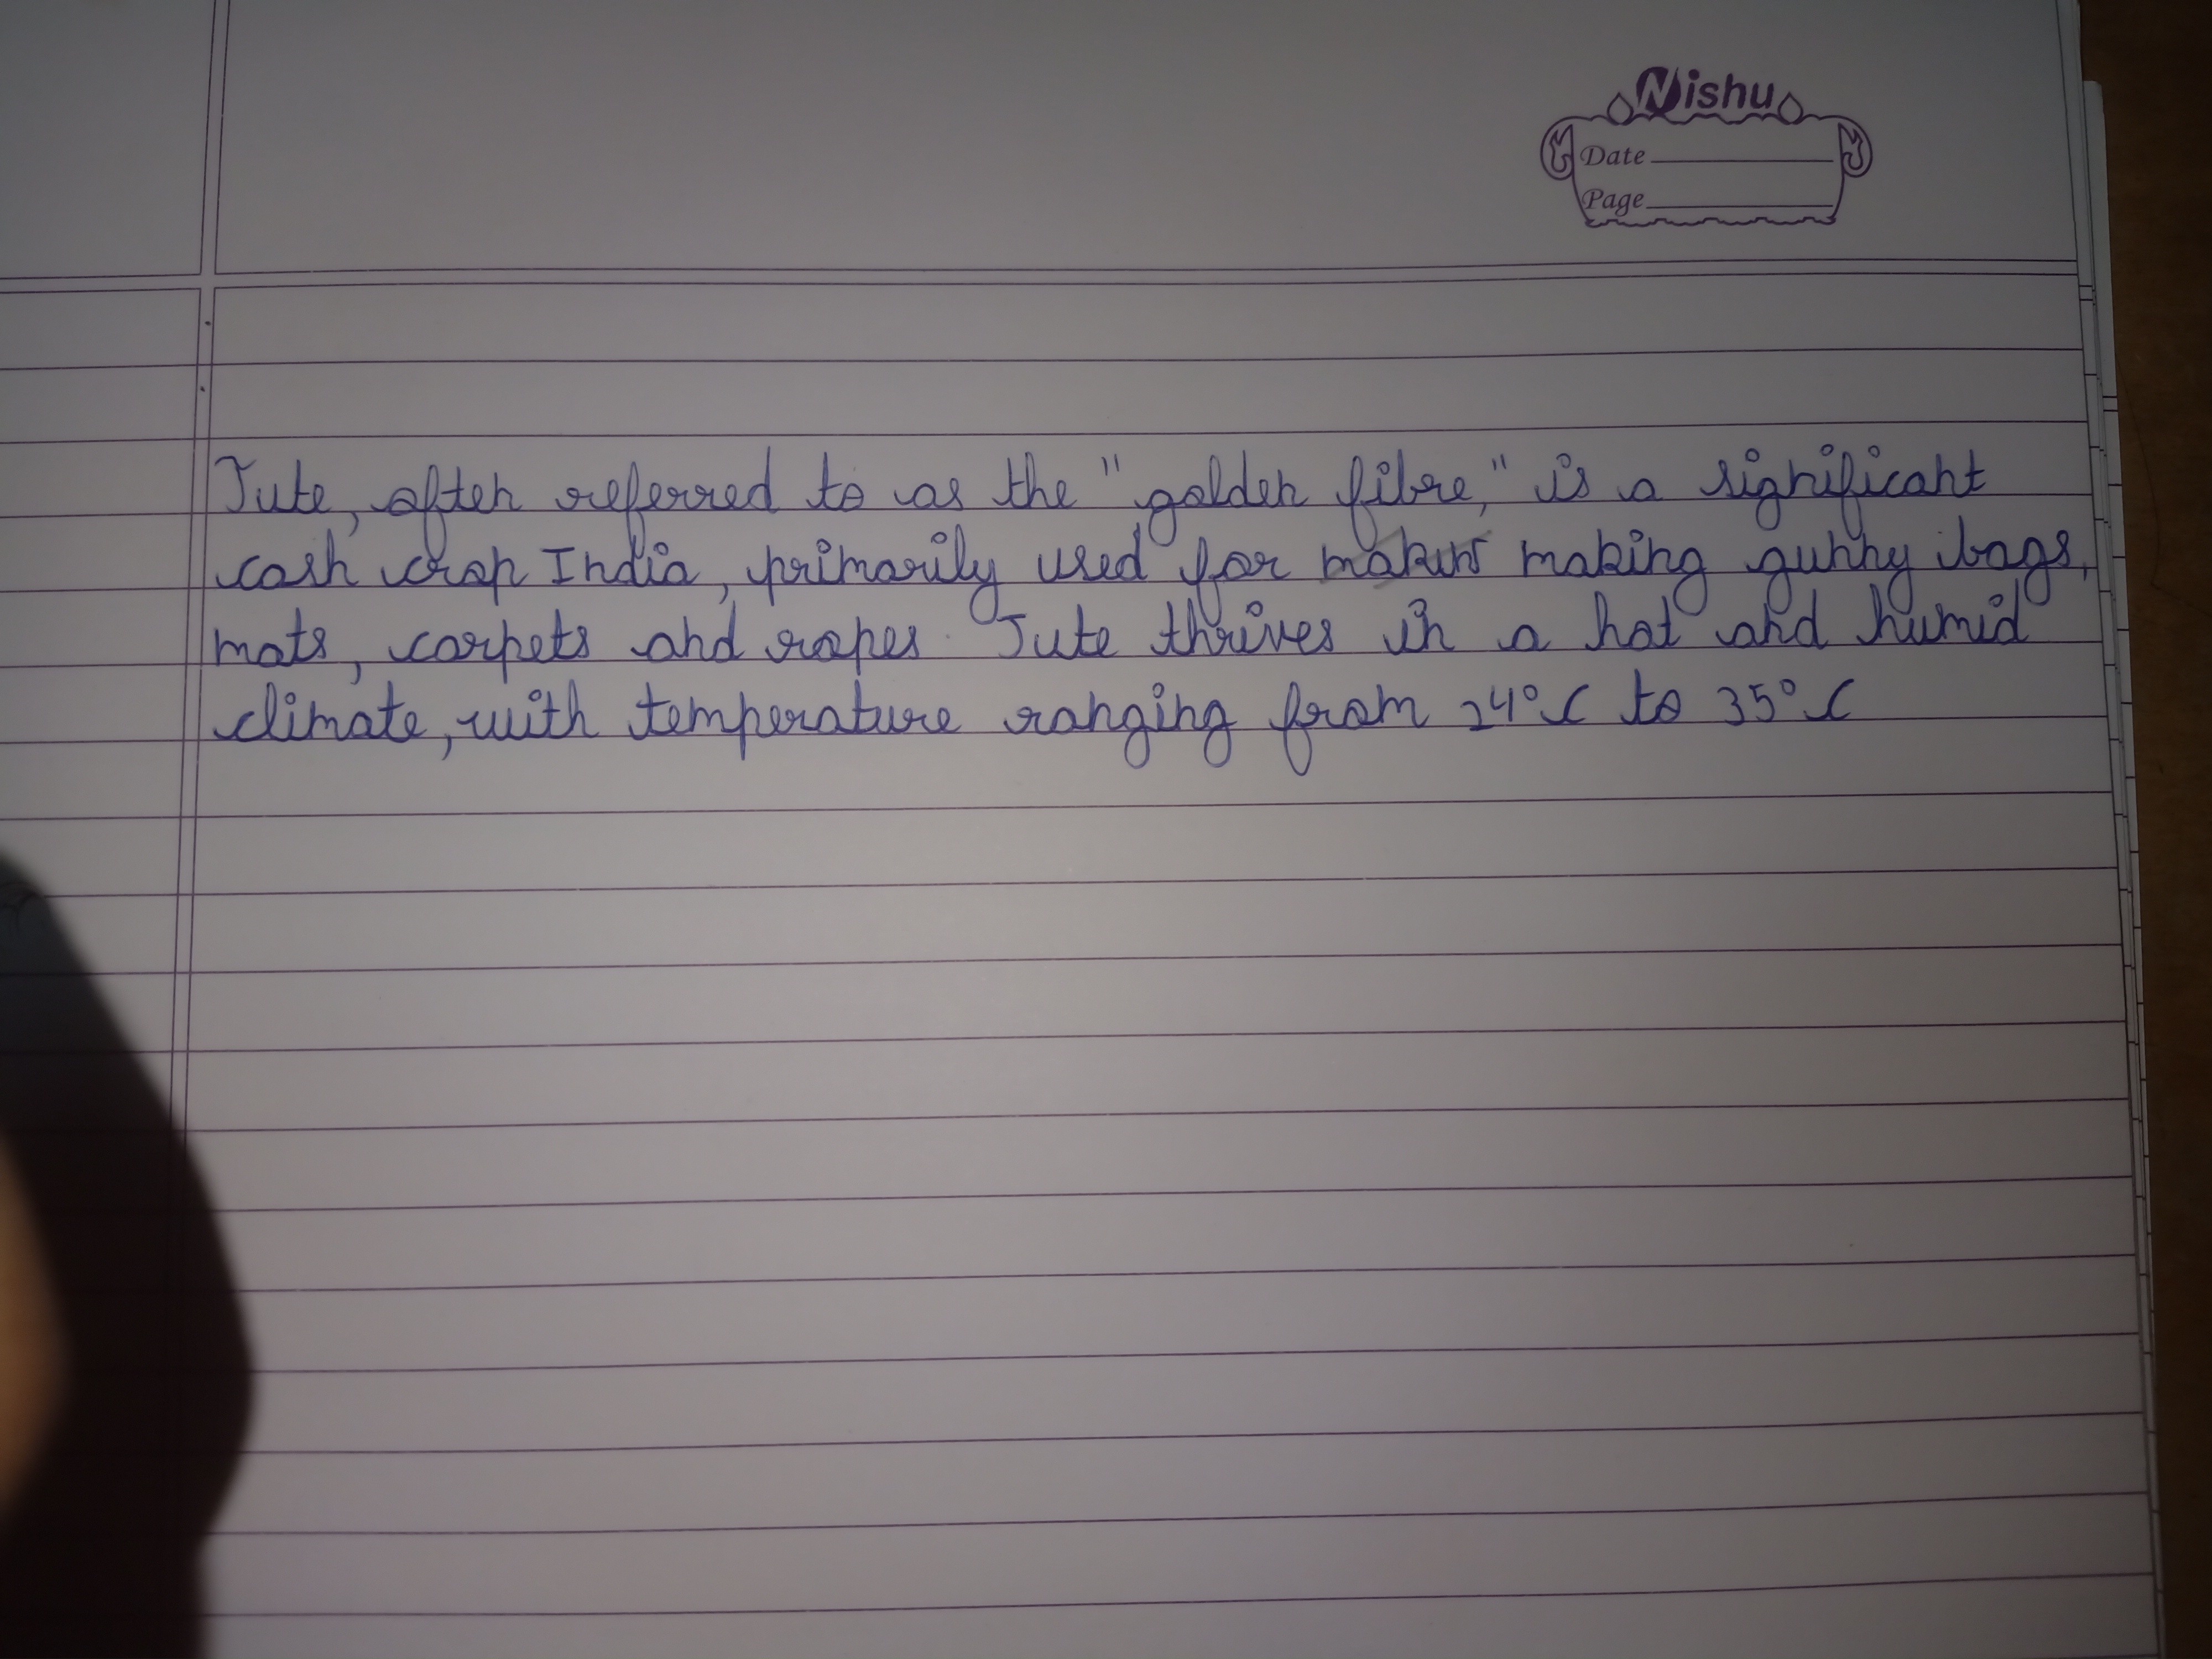 Nishu
Date
Page
Jute, often referred to as the "golden fibre," is a significant
cash crop India, primarily used for making gunny bags,
mats, carpets and ropes. Jute thrives in a hot and humid
climate, with temperature ranging from 24°C to 35°C